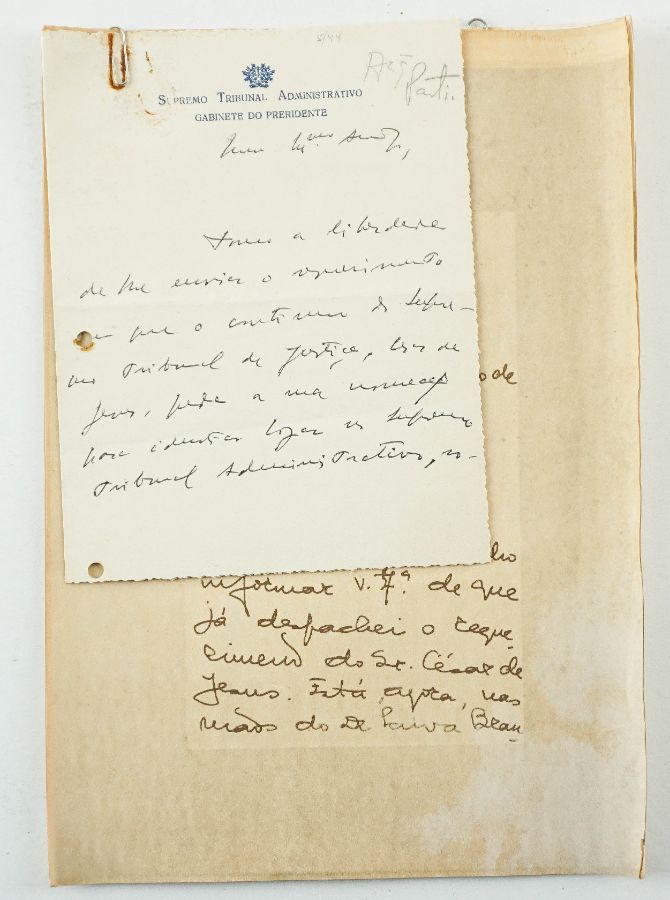 5/44
Arq. Parti.
SUPREMO TRIBUNAL ADMINISTRATIVO
GABINETE DO PRERIDENTE
Tomo a liberdade
de lhe enviar o requerimento
em que o contínuo do Supre-
mo Tribunal de Justiça, César de
Jesus, pede a sua nomeação
para idêntico lugar no Supremo
Tribunal Administrativo, ro-
o de
lho
informar V. Exª. de que
já despachei o reque-
rimento do Sr. César de
Jesus. Está, agora, nas
mãos do Dr Paiva Bran-